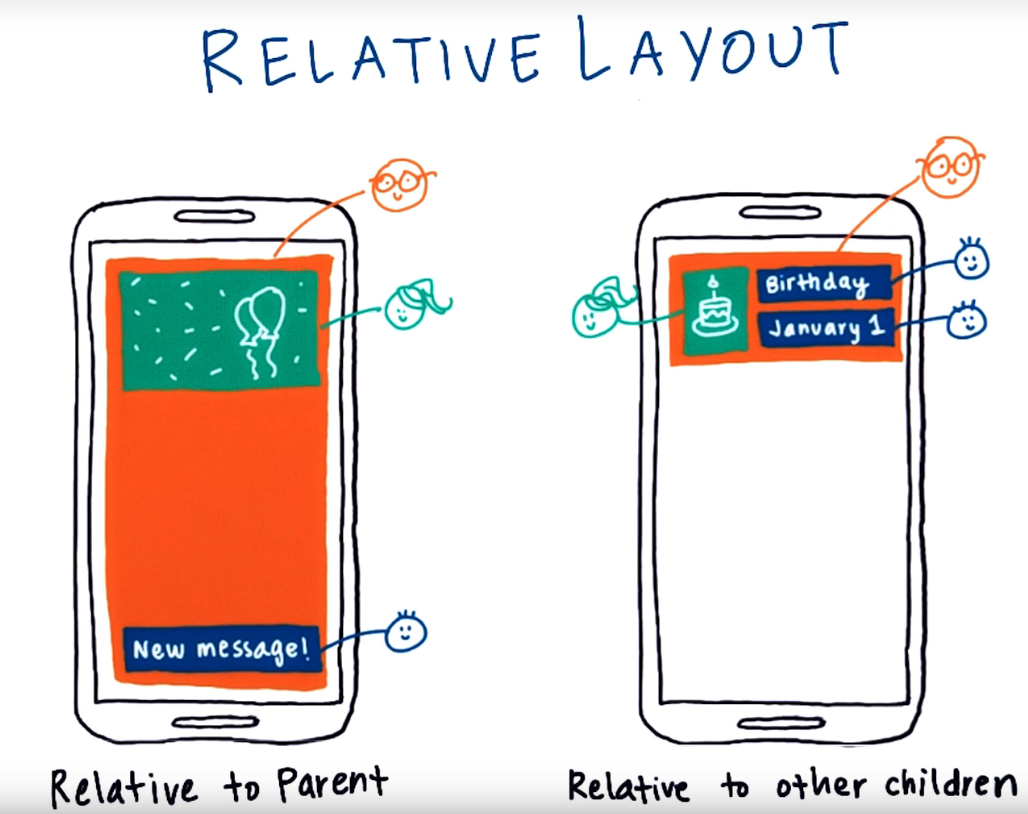 RELATIVE LAYOUT
New message!
Relative to Parent
Birthday
January 1
Relative to other children